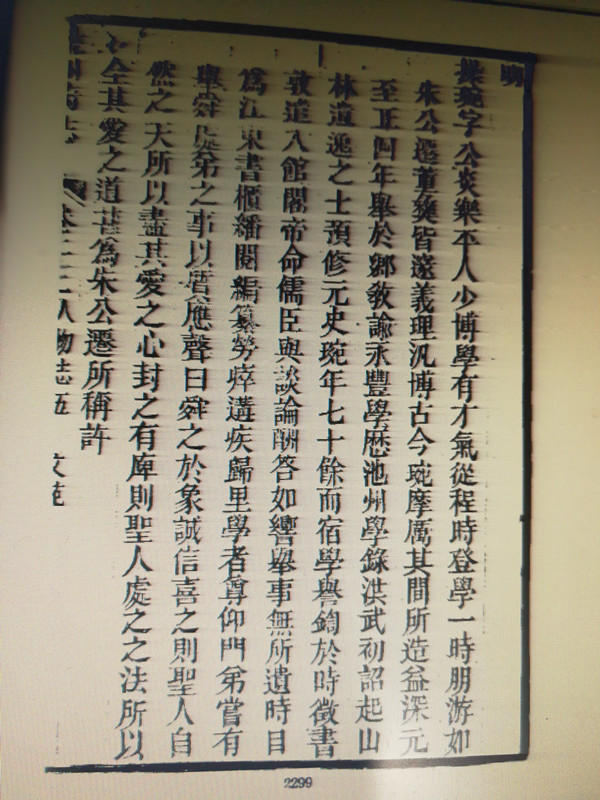 明
操琬字公琰樂平人少博學有才氣從程時登學一時朋游如
朱公遷董彝皆邃義理汎博古今琬摩厲其間所造益深元
至正四年舉於鄉敎諭永豐學歷池州學錄洪武初詔起山
林遺逸之士預修元史琬年七十餘而宿學譽鈞於時徵書
敦遣入館閣帝命儒臣與談論酬答如響舉事無所遺時目
爲江東書櫃繙閱編纂勞瘁遘疾歸里學者尊仰門弟嘗有
舉舜處弟之事以㬪應聲曰舜之於象誠信喜之則聖人自
然之天所以盡其愛之心封之有庳則聖人處之之法所以
全其愛之道甚爲朱公遷所稱許
卷二十二人物志五 文苑
2299